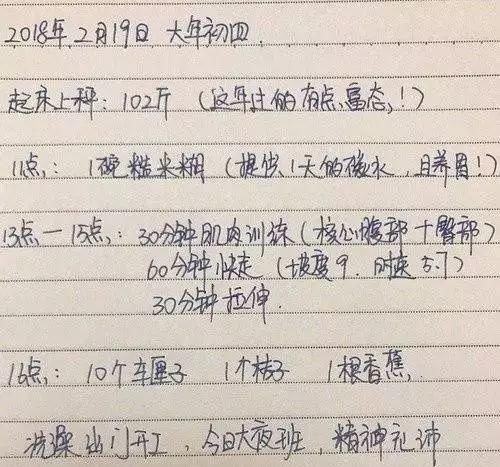 2018年2月19日 大年初四.
起床上秤: 102斤 (这年过的有点富态!)
11点: 1碗糙米糊 (提供1天的碳水, 且养胃!)
13点—15点: 30分钟肌肉训练 (核心腹部+臀部)
60分钟快走 (坡度9. 时速5.7)
30分钟拉伸.
16点: 10个车厘子 1个桔子 1根香蕉.
洗澡出门开工, 今日大夜班, 精神充沛